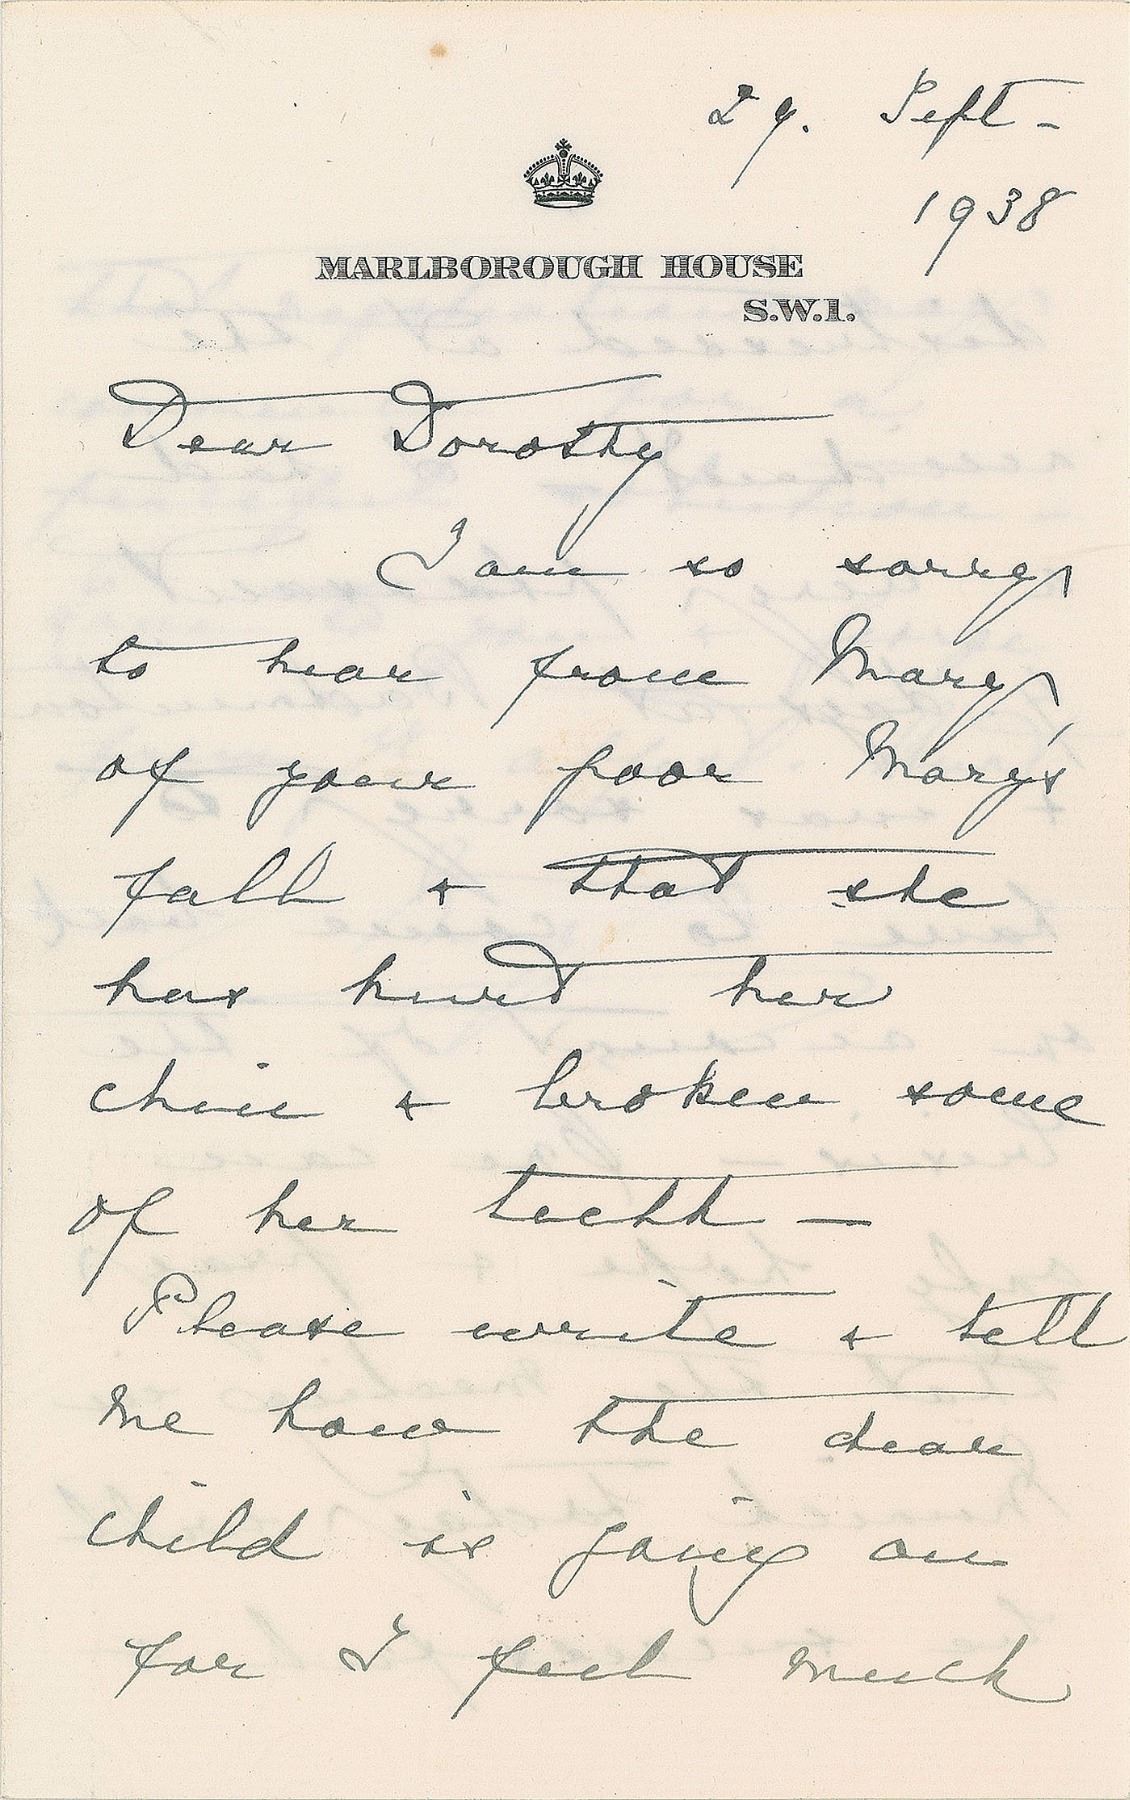 29. Sept -
1938
MARLBOROUGH HOUSE
S.W.1.
Dear Dorothy
I am so sorry
to hear from Mary
of your poor Mary's
fall & that she
has hurt her
chin & broken some
of her teeth —
Please write & tell
me how the dear
child is going on
for I feel much